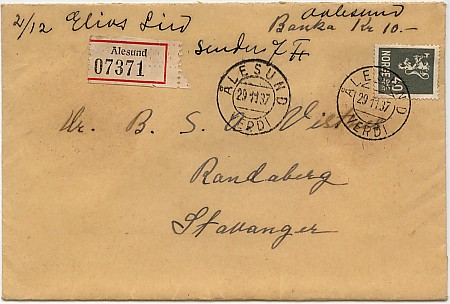 2/12 Elias Lied
Aalesund
Banka Kr 10.-
sender
Ålesund
07371
ÅLESUND
29 11 37
VERDI
ÅLESUND
29 11 37
VERDI
NORGE
40
Hr. B. S.
Randaberg
Stavanger